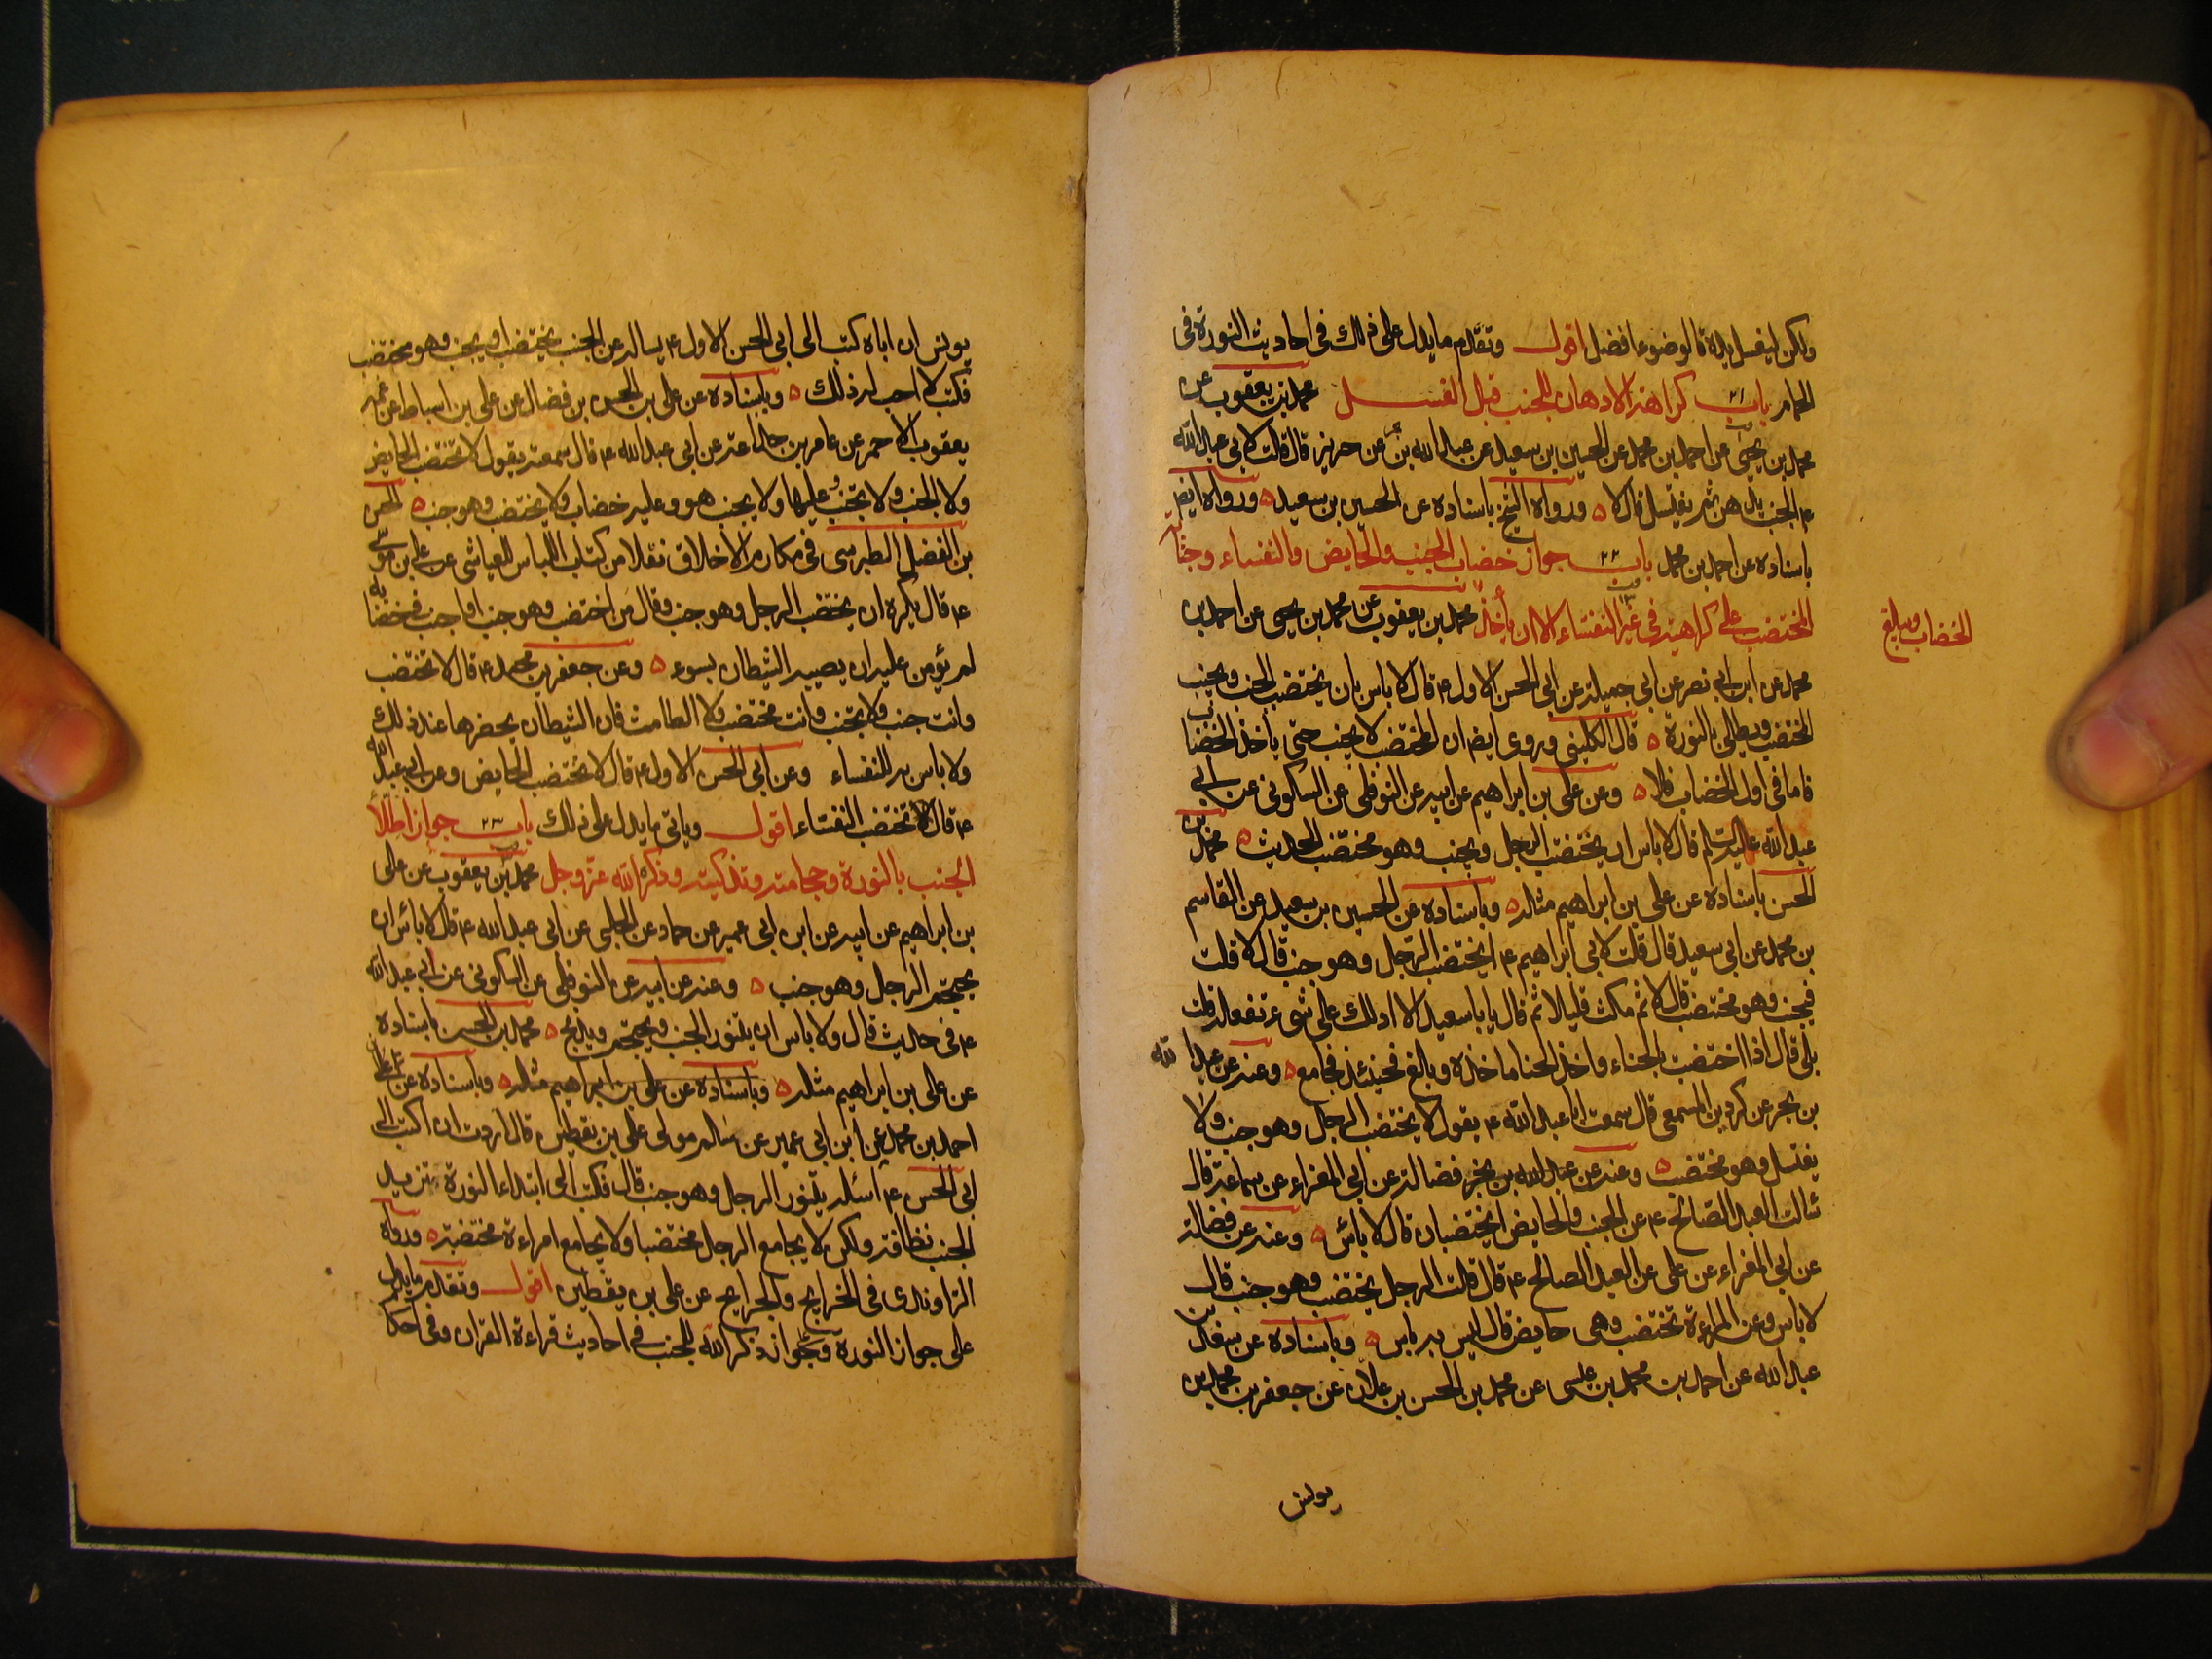 ولكن ليغسل يده فالوضوء افضل اقول وتقدم ما يدل على ذلك في احاديث النورة في
الحمام باب ٢١ كراهة الادهان للجنب قبل الغسل محمد بن يعقوب عن
محمد بن يحيى عن احمد بن محمد عن الحسين بن سعيد عن عبد الله بن عن حريز قال قلت لابي عبد الله
ع الجنب يدهن ثم يغتسل قال لا ورواه الشيخ باسناده عن الحسين بن سعيد ورواه ايض
باسناده عن احمد بن محمد باب ٢٢ جواز خضاب الجنب والحايض والنفساء وجنابة
المختضب على كراهية في غير النفساء الا ان ياخذ محمد بن يعقوب عن محمد بن يحيى عن احمد بن
الخضاب ويبلغ
محمد عن ابن ابي نصر عن ابي جميلة عن ابي الحسن الاول ع قال لا باس بان يختضب الجنب ويجنب
المختضب ويطلي بالنورة قال الكليني وروى ايض ان المختضب لا يجنب حتى ياخذ الخضاب
فاما في اول الخضاب فلا وعن علي بن ابراهيم عن ابيه عن النوفلي عن السكوني عن ابي
عبد الله عليه السلم قال لا باس ان يختضب الرجل ويجنب وهو مختضب الحديث محمد بن
الحسن باسناده عن علي بن ابراهيم مثله وباسناده عن الحسين بن سعيد عن القاسم
بن محمد عن ابي سعيد قال قلت لابي ابراهيم ع ايختضب الرجل وهو جنب قال لا قلت
فيجنب وهو مختضب قال لا ثم مكث قليلا ثم قال يا با سعيد الا ادلك على شيء تفعله قلت
بلى قال اذا اختضبت بالحناء واخذ الحنا ماخذه وبلغ فحينئذ فجامع وعنه عن عبد الله
بن بحر عن كردين المسمعي قال سمعت ابا عبد الله ع يقول لا يختضب الرجل وهو جنب ولا
يغتسل وهو مختضب وعنه عن فضالة عن ابي المغراء عن سماعة قال
سالت العبد الصالح ع عن الجنب والحايض ايختضبان قال لا باس وعنه عن فضالة
عن ابي المغراء عن علي عن العبد الصالح ع قال قلت الرجل يختضب وهو جنب قال
لا باس وعن المراة تختضب وهي حايض قال ليس به باس وباسناده عن سعد بن
عبد الله عن احمد بن محمد بن عيسى عن محمد بن الحسن بن علان عن جعفر بن محمد بن
يونس
يونس ان اباه كتب الى ابي الحسن الاول ع يساله عن الجنب يختضب او يجنب وهو مختضب
فكتب لا احب له ذلك وباسناده عن علي بن الحسن بن فضال عن علي بن اسباط عن عمه
يعقوب الاحمر عن عامر بن جذاعة عن ابي عبد الله ع قال سمعته يقول لا تختضب الحايض
ولا الجنب ولا تجنب وعليها ولا يجنب هو وعليه خضاب ولا يختضب وهو جنب الحسن
بن الفضل الطبرسي في مكارم الاخلاق نقلا من كتاب اللباس للعياشي عن علي بن موسى
ع قال يكره ان يختضب الرجل وهو جنب وقال من اختضب وهو جنب او اجنب في خضابه
لم يؤمن عليه ان يصيبه الشيطان بسوء وعن جعفر بن محمد ع قال لا تختضب
وانت جنب ولا تجنب وانت مختضب ولا الطامث فان الشيطان يحضرها عند ذلك
ولا باس به للنفساء وعن ابي الحسن الاول ع قال لا تختضب الحايض وعن ابي عبد الله
ع قال لا تختضب النفساء اقول وياتي ما يدل على ذلك باب ٢٣ جواز اطلاء
الجنب بالنورة وحجامته وتذكيته وذكره الله عز وجل محمد بن يعقوب عن علي
بن ابراهيم عن ابيه عن ابن ابي عمير عن حماد عن الحلبي عن ابي عبد الله ع قال لا باس ان
يحتجم الرجل وهو جنب وعنه عن ابيه عن النوفلي عن السكوني عن ابي عبد الله
ع في حديث قال ولا باس ان يتنور الجنب ويحتجم ويذبح محمد بن الحسن باسناده
عن علي بن ابراهيم مثله وباسناده عن علي بن ابراهيم مثله وباسناده عن
احمد بن محمد عن ابن ابي عمير عن سالم مولى علي بن يقطين قال اردت ان اكتب الى
ابي الحسن ع اسئله يتنور الرجل وهو جنب قال فكتب الي ابتداء النورة تزيد
الجنب نظافة ولكن لا يجامع الرجل مختضبا ولا يجامع امراة مختضبة ورواه
الراوندي في الخرايج والجرايح عن علي بن يقطين اقول وتقدم ما يدل
على جواز النورة وجواز ذكر الله للجنب في احاديث قراءة القران وفي احكام